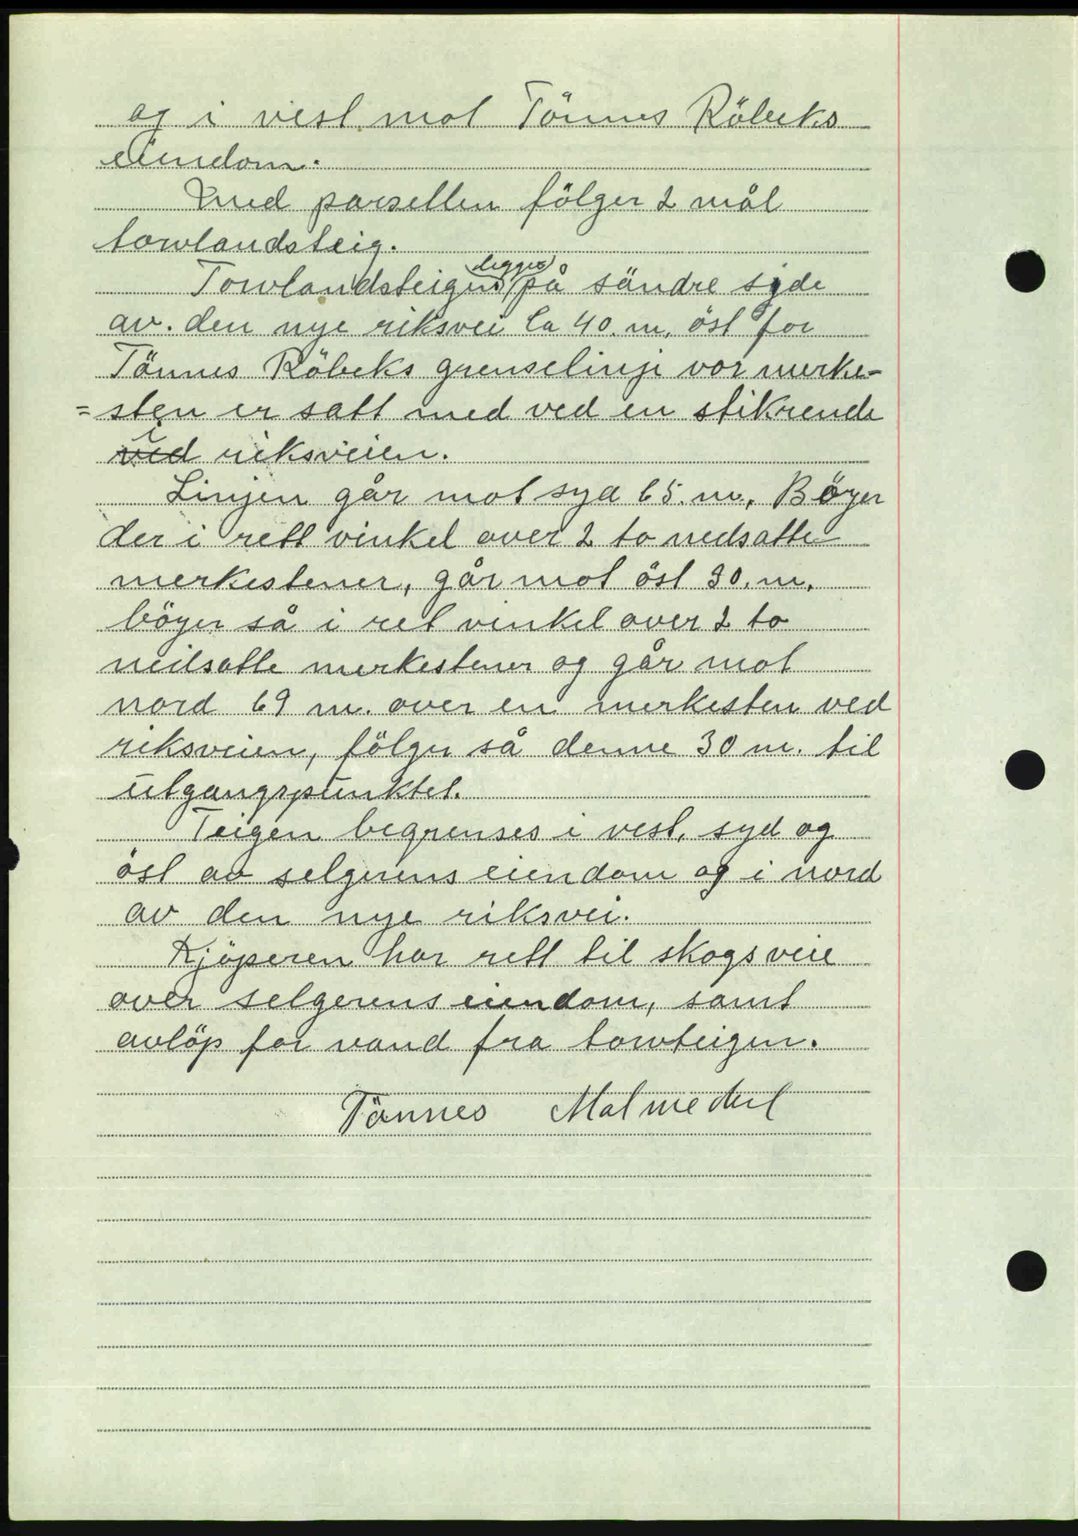 og i vest mot Tönnes Röbeks
eiendom.
Med parsellen fölger 2 mål
torvlandsteig.
Torvlandsteigen ligger på söndre syde
av den nye riksvei ca 40 m, öst for
Tönnes Röbeks grenselinje vor merke-
=sten er satt ned ved en stikrende
ved i riksveien.
Linjen går mot syd 65 m, Böyer
der i rett vinkel over 2 to nedsatte
merkestener, går mot öst 30. m.
böyer så i ret vinkel over 2 to
neilsatte merkestener og går mot
nord 69 m. over en merkesten ved
riksveien, fölger så denne 30 m. til
utgangspunktet.
Teigen begrenses i vest, syd og
öst av selgerens eiendom og i nord
av den nye riksvei.
Kjöperen har rett til skogsveie
over selgerens eiendom, samt
avlöp for vand fra torvteigen.
Tönnes Malmedal